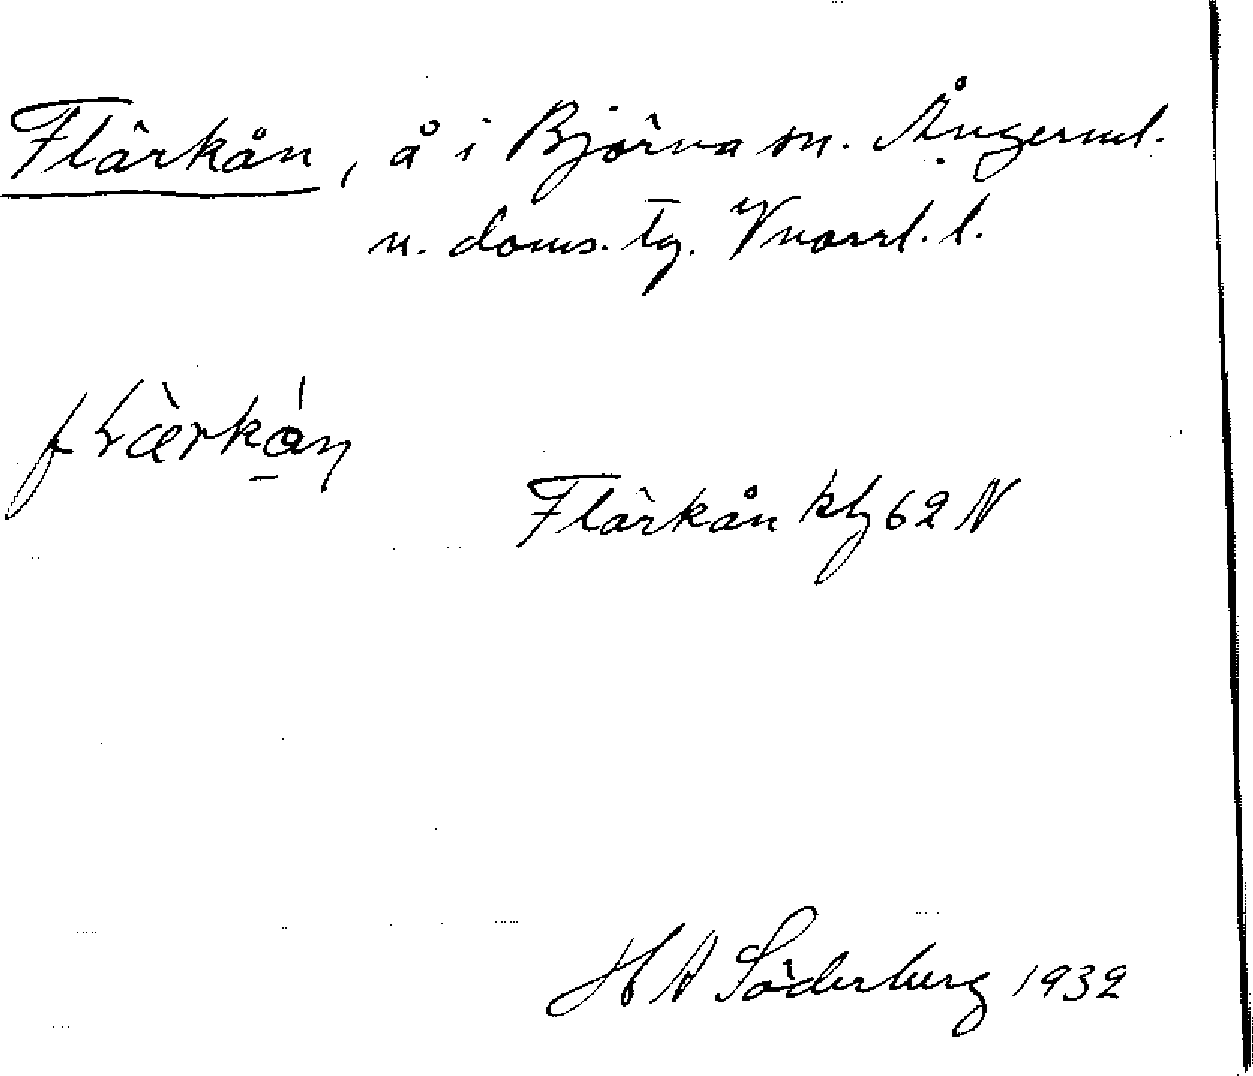 Flärkån, å i Björna sn. Ångerml.
n. doms. tg. Vnorrl. l.
Flärkån kbl 62 N
H A Söderberg 1932